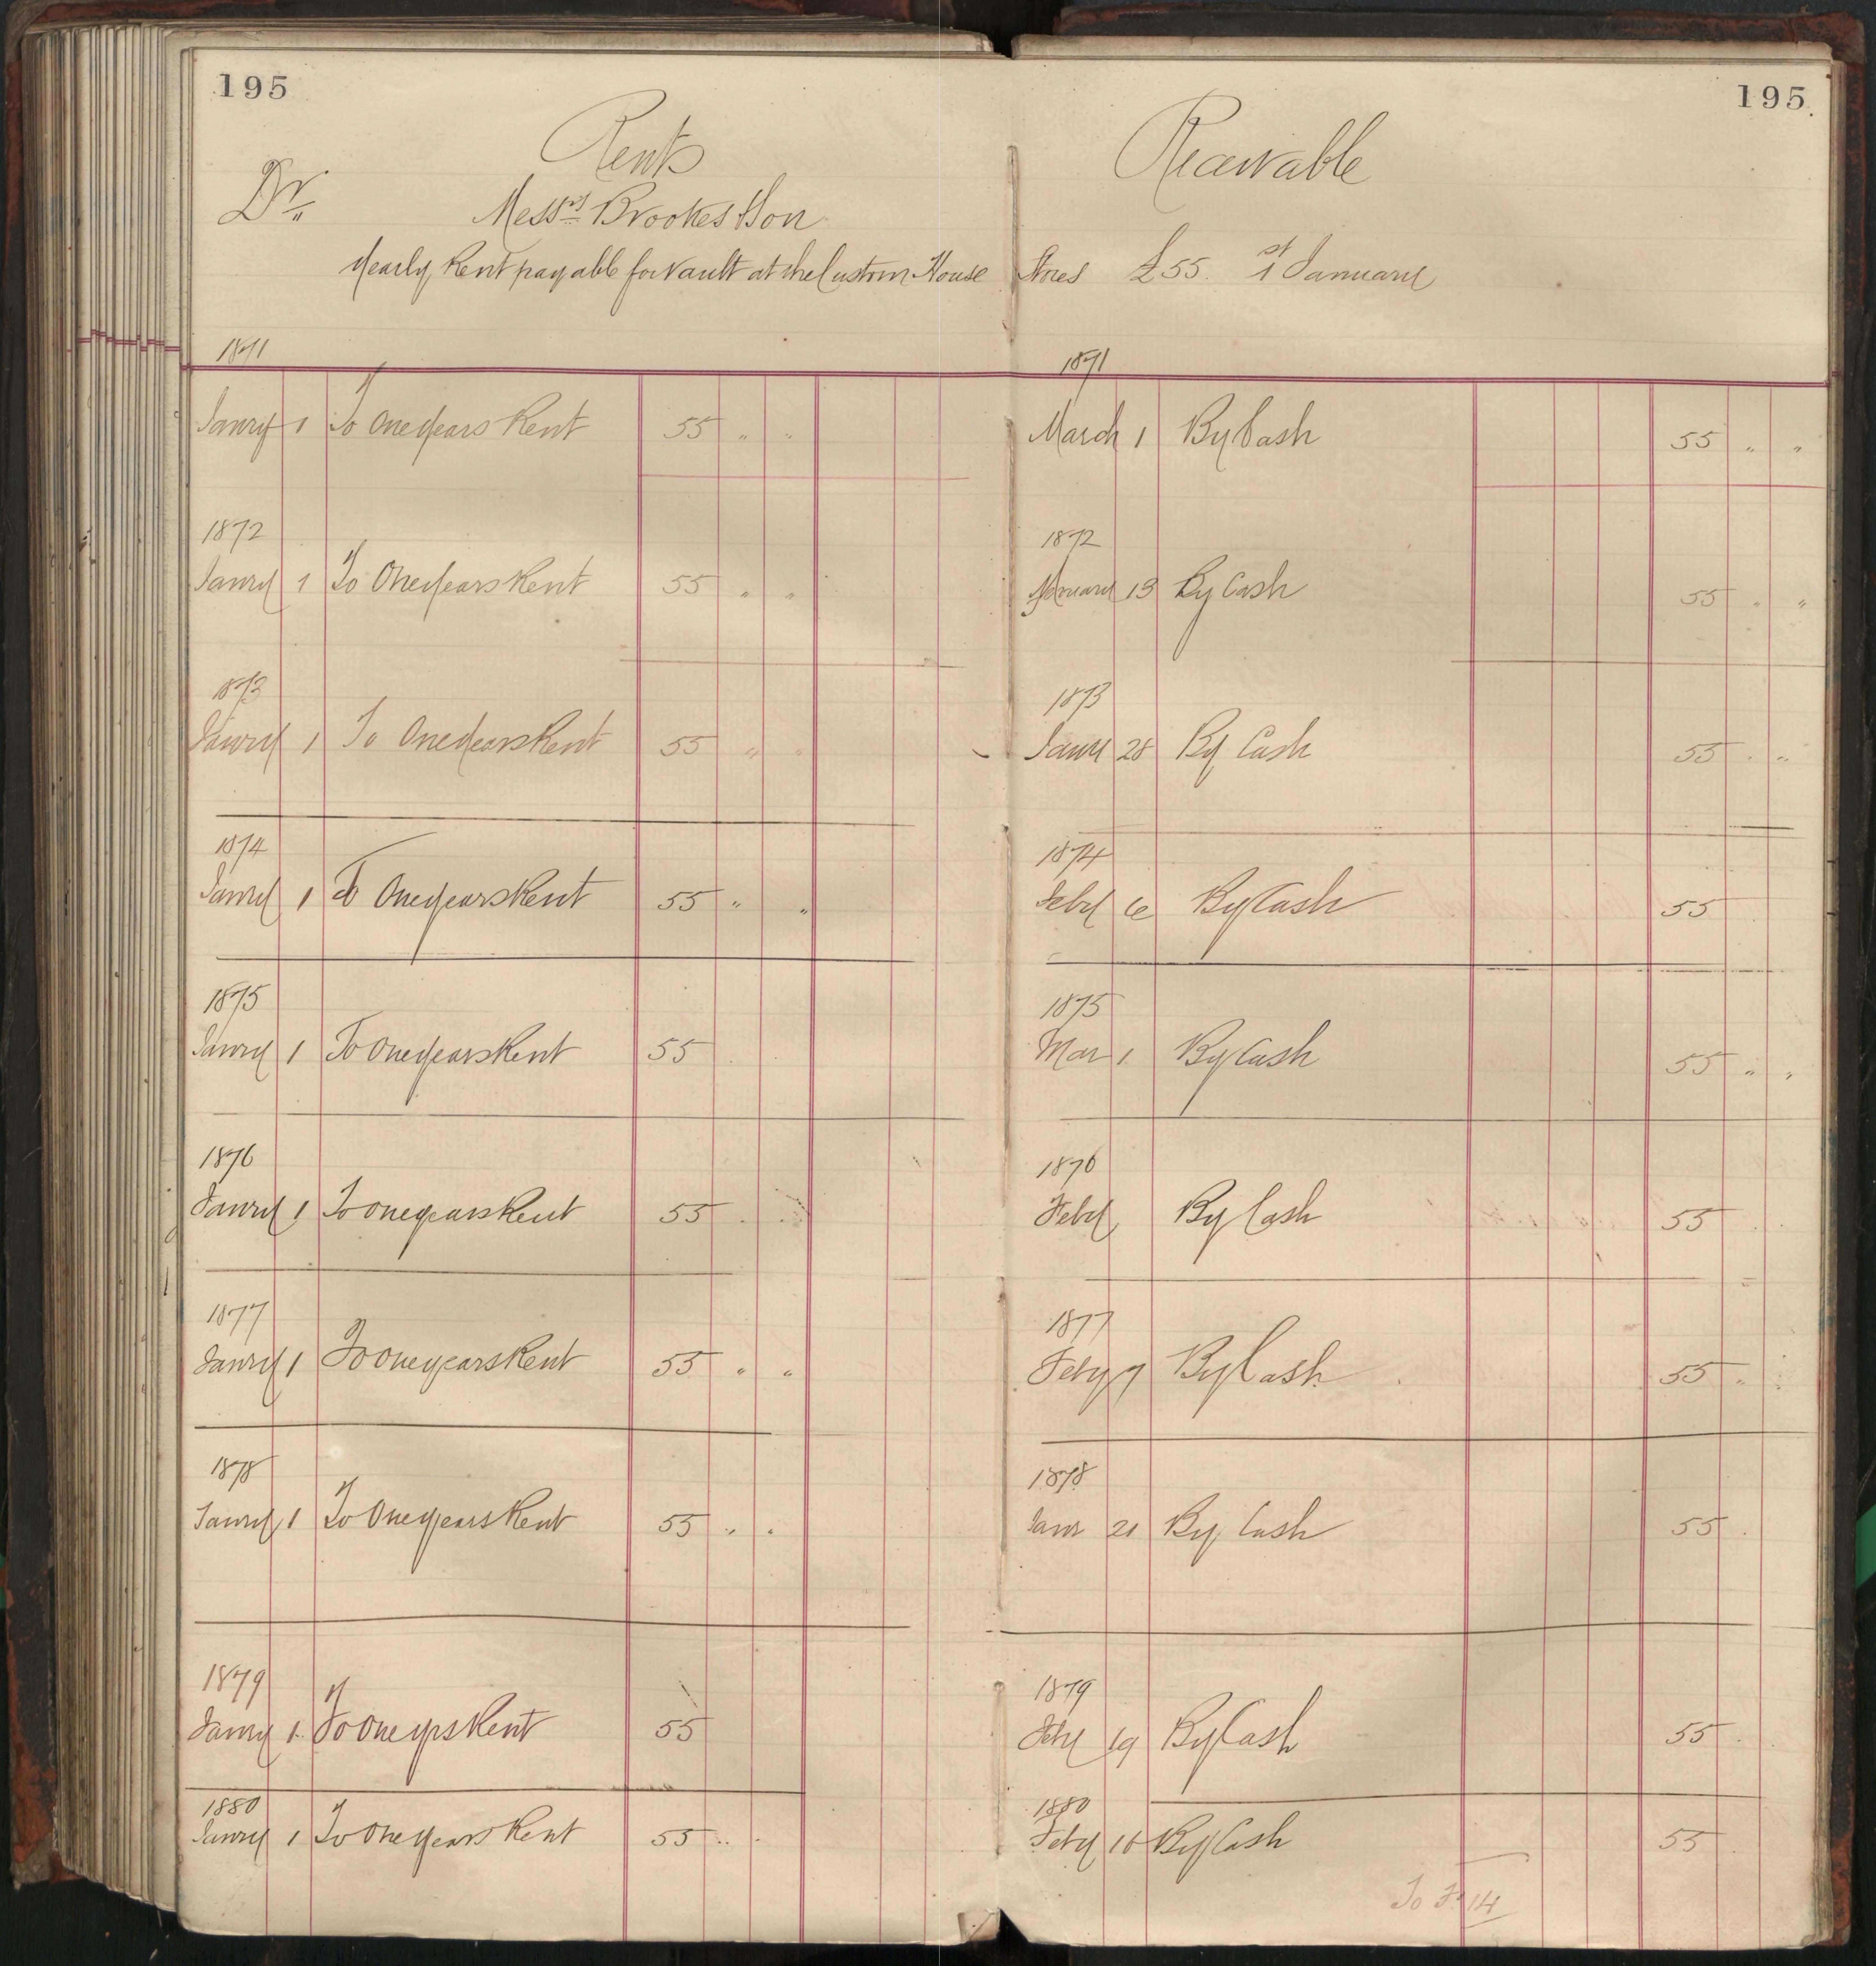 195
Rents
Dr.
Messrs Brookes & Son
Yearly Rent payable for Vault at the Custom House
1871
Janry 1 To One Years Rent 55 " "
1872
Janry 1 To One Years Rent 55 " "
1873
Janry 1 To One Years Rent 55 " "
1874
Janry 1 To One years Rent 55 " "
1875
Janry 1 To One years Rent 55
1876
Janry 1 To one years Rent 55
1877
Janry 1 To one years Rent 55 " "
1878
Janry 1 To One years Rent 55 " "
1879
Janry 1 To One yrs Rent 55
1880
Janry 1 To One Years Rent 55 "
195
Receivable
Stores £55. 1st January
1871
March 1 By Cash 55 " "
1872
13 By Cash 55 " "
1873
Jany 28 By Cash 55 " "
1874
Feby 6 By Cash 55
1875
Mar 1 By Cash 55 " "
1876
Feby By Cash 55
1877
Feby 7 By Cash 55 "
1878
Janr 21 By Cash 55
1879
Feby 19 By Cash 55
1880
Feby 10 By Cash 55
To F 14